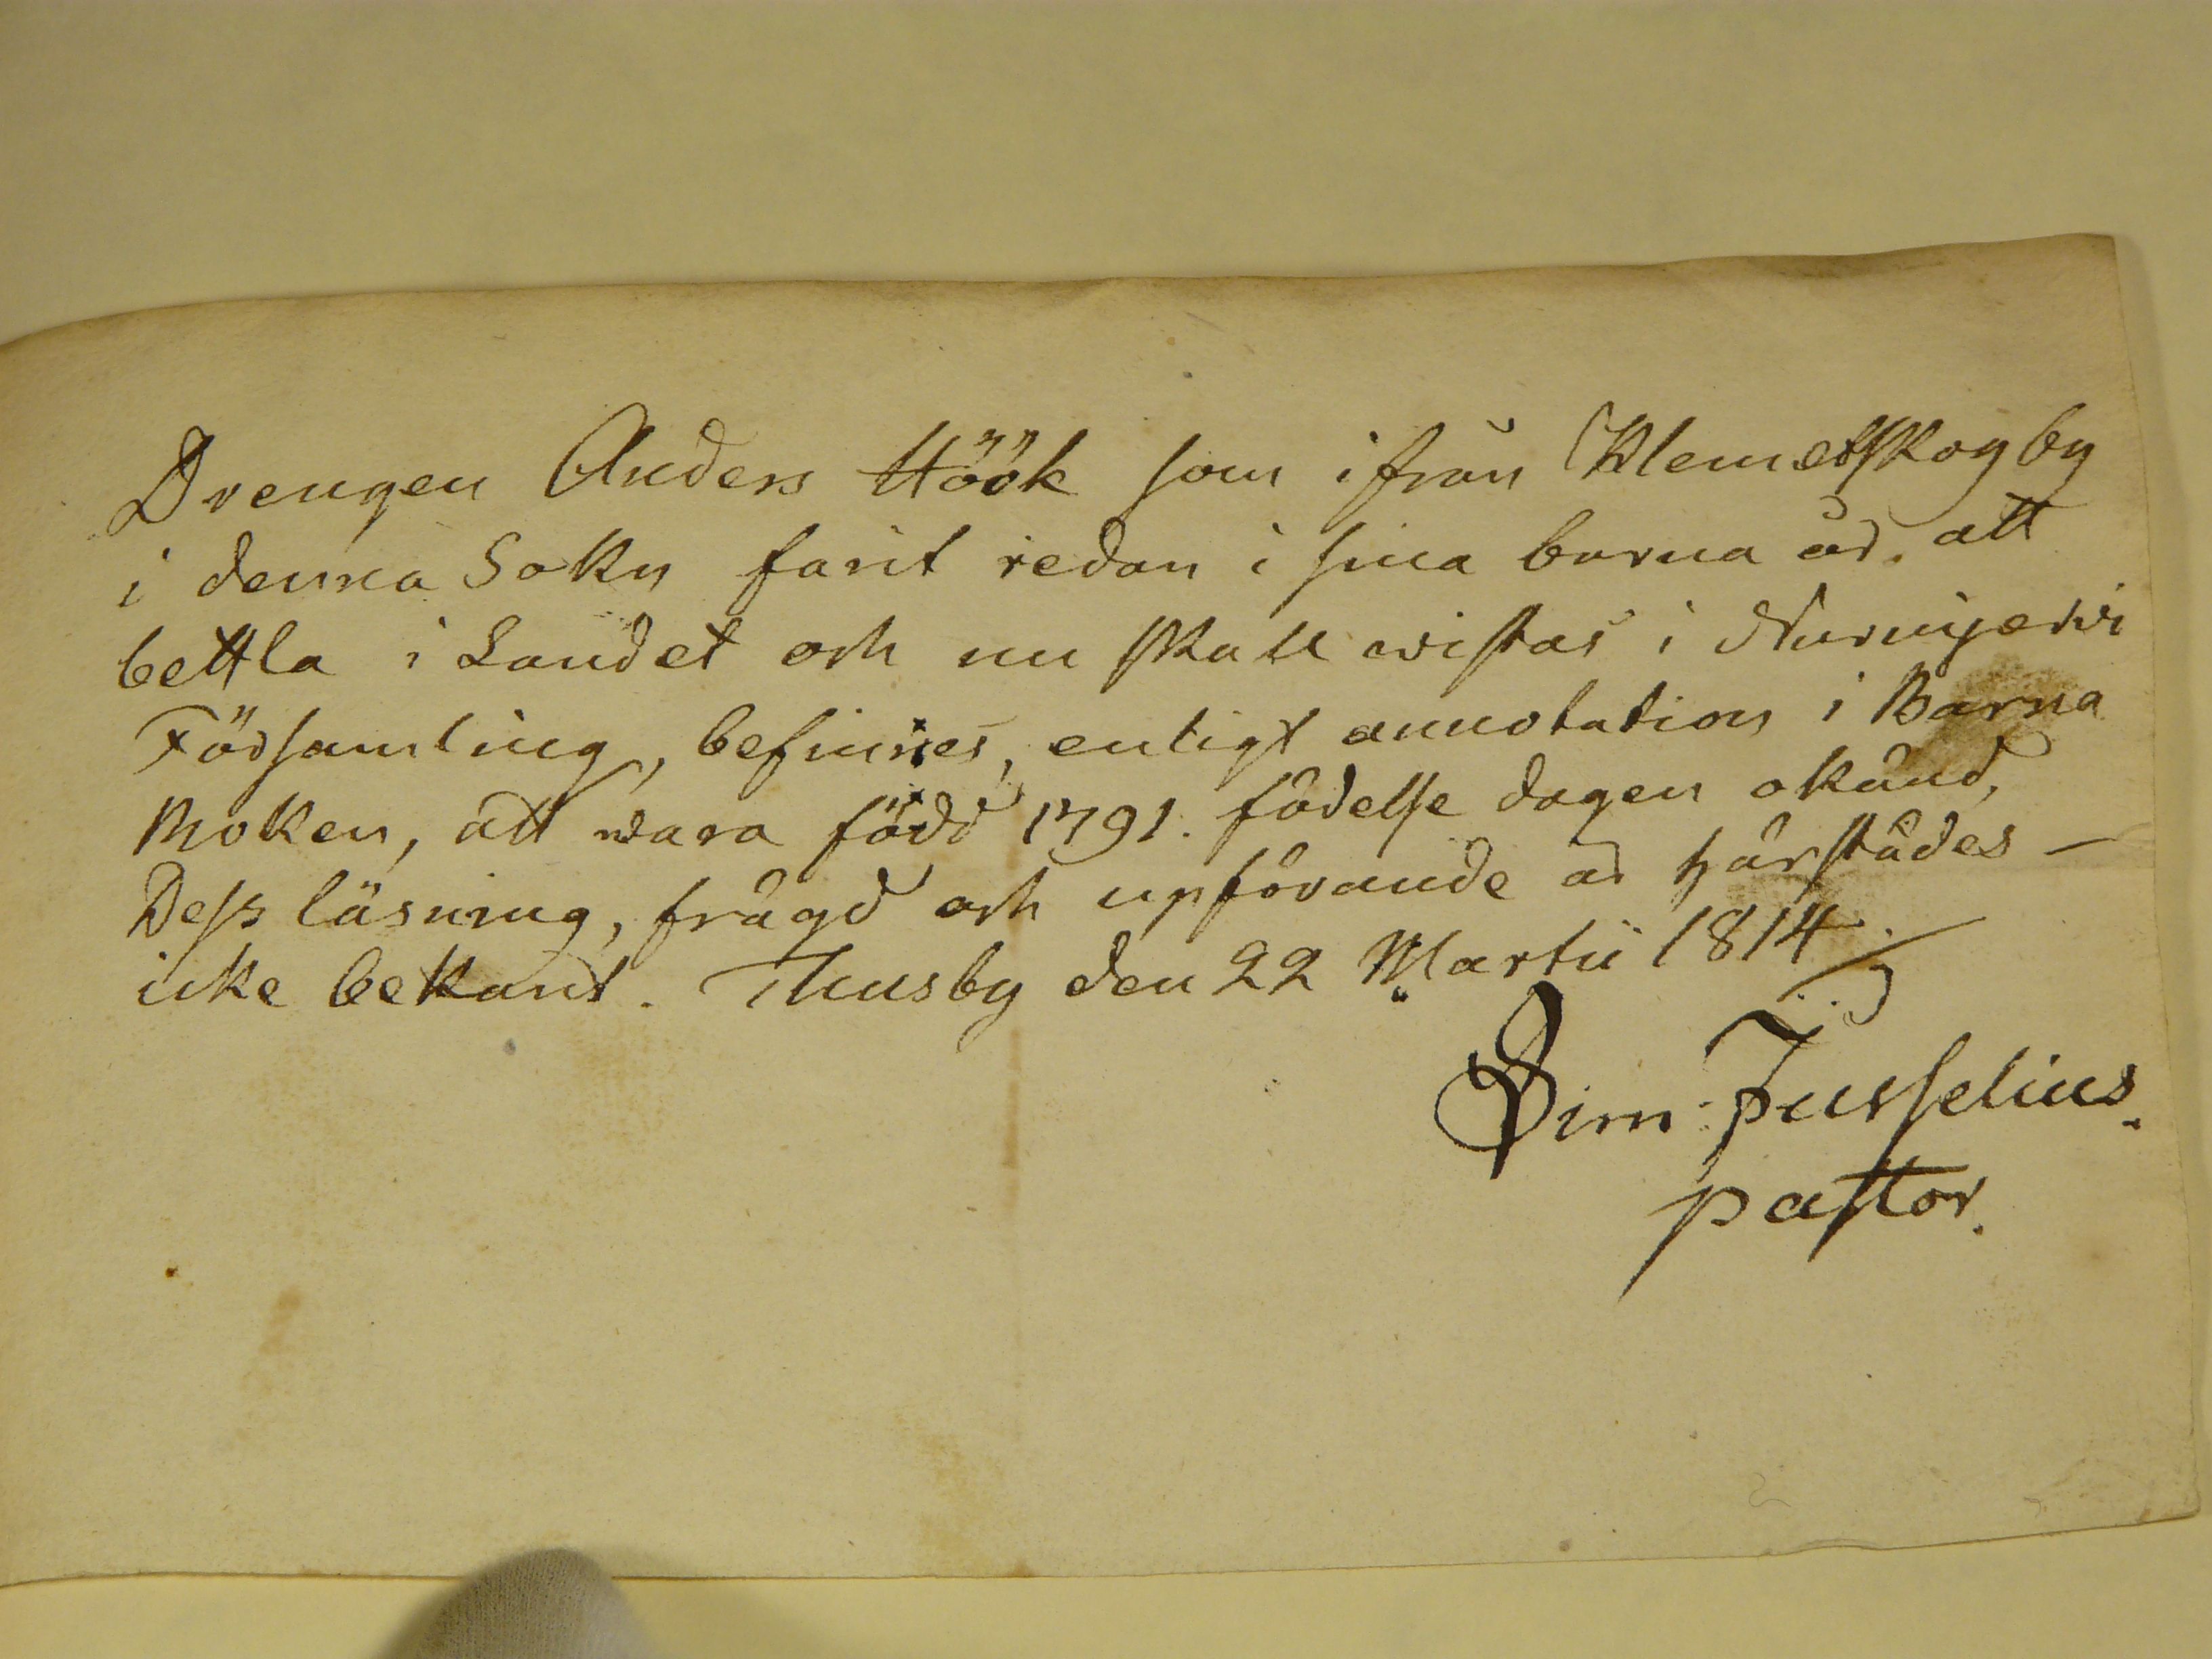 Drengen Anders Höök som ifrån Klemetskog by
i denna Sokn farit redan i sina barna år, att
bettla i Landet och nu skall wistas i Nurmijerwi
Församling, befinnes, enligt annotation i Barna
Boken, att wara född 1791. födelse dagen okänd,
Dess läsning, frägd och upförande är härstädes –
icke bekant. Thusby den 22 Martii 1814
Sim: Jusselius.
pastor.